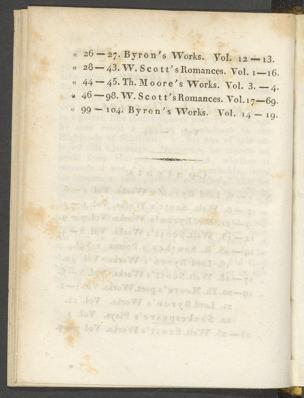 „ 26 — 27. Byron's Works. Vol. 12 — 13.
„ 28 — 43. W. Scott's Romances. Vol. 1 — 16.
„ 44 — 45. Th. Moore's Works. Vol. 3. — 4.
„ 46 — 98. W. Scott's Romances. Vol. 17 — 69.
„ 99 — 104. Byron's Works. Vol. 14 — 19.